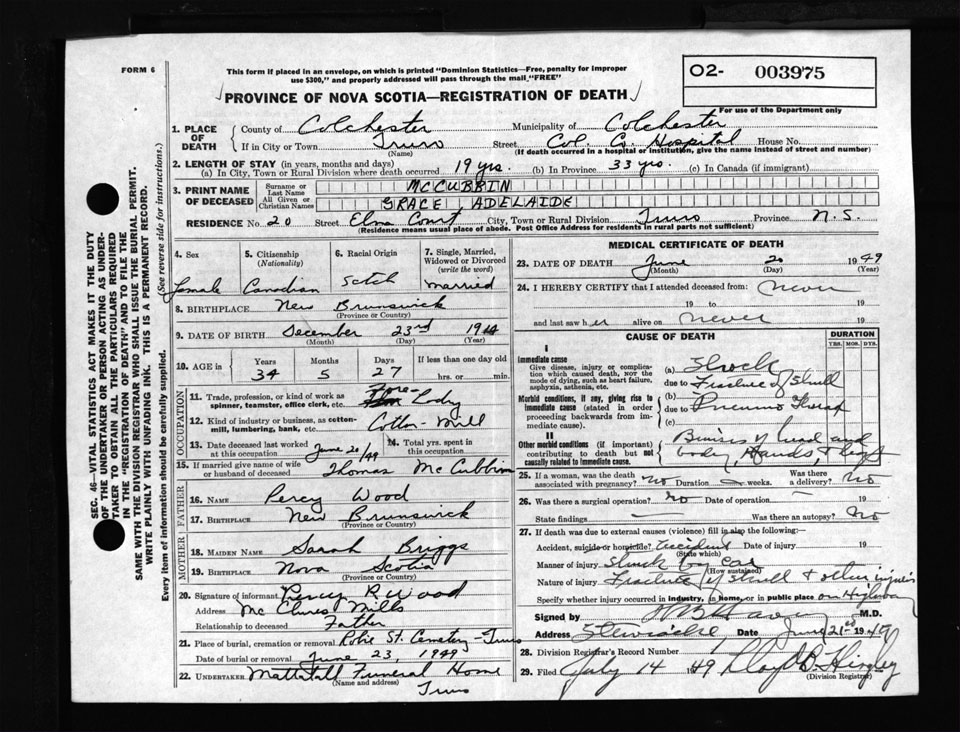 FORM 6
This form if placed in an envelope, on which is printed "Dominion Statistics—Free, penalty for improper
use $300," and properly addressed will pass through the mail "FREE"
O2- 003975
For use of the Department only
PROVINCE OF NOVA SCOTIA—REGISTRATION OF DEATH
SEC. 46—VITAL STATISTICS ACT MAKES IT THE DUTY
OF THE UNDERTAKER OR PERSON ACTING AS UNDER-
TAKER TO OBTAIN ALL THE PARTICULARS REQUIRED
IN THE "REGISTRATION OF DEATH" AND TO FILE THE
SAME WITH THE DIVISION REGISTRAR WHO SHALL ISSUE THE BURIAL PERMIT.
WRITE PLAINLY WITH UNFADING INK. THIS IS A PERMANENT RECORD.
Every item of information should be carefully supplied. (See reverse side for instructions.)
1. PLACE OF DEATH County of Colchester Municipality of Colchester
If in City or Town Truro Street Col. Co. Hospital House No.
(Name) (If death occurred in a hospital or institution, give the name instead of street and number)
2. LENGTH OF STAY (in years, months and days)
(a) In City, Town or Rural Division where death occurred 19 yrs. (b) In Province 33 yrs. (c) In Canada (if immigrant)
3. PRINT NAME OF DECEASED Surname or Last Name MCCUBBIN
All Given or Christian Names GRACE, ADELAIDE
RESIDENCE No 20 Street Elm Court City, Town or Rural Division Truro Province N.S.
(Residence means usual place of abode. Post Office Address for residents in rural parts not sufficient)
4. Sex female
5. Citizenship (Nationality) Canadian
6. Racial Origin Sctch
7. Single, Married, Widowed or Divorced (write the word) married
8. BIRTHPLACE New Brunswick
(Province or Country)
9. DATE OF BIRTH December 23rd 1914
(Month) (Day) (Year)
10. AGE in Years 34 Months 5 Days 27 If less than one day old hrs. or min.
OCCUPATION
11. Trade, profession, or kind of work as spinner, teamster, office clerk, etc. Fore-Lady
12. Kind of industry or business, as cotton-mill, lumbering, bank, etc. Cotton-Mill
13. Date deceased last worked at this occupation June 20/49
14. Total yrs. spent in this occupation
15. If married give name of wife or husband of deceased Thomas McCubbin
FATHER
16. NAME Percy Wood
17. BIRTHPLACE New Brunswick
(Province or Country)
MOTHER
18. MAIDEN NAME Sarah Briggs
19. BIRTHPLACE Nova Scotia
(Province or Country)
20. Signature of informant Percy R Wood
Address Mc Elmes Mills
Relationship to deceased Father
21. Place of burial, cremation or removal Robie St. Cemetery-Truro
Date of burial or removal June 23, 1949
22. UNDERTAKER Mattatall Funeral Home
(Name and address) Truro
MEDICAL CERTIFICATE OF DEATH
23. DATE OF DEATH June 20 1949
(Month) (Day) (Year)
24. I HEREBY CERTIFY that I attended deceased from never
19 to 19
and last saw her alive on never 19
CAUSE OF DEATH
DURATION
YRS. MOS. DYS.
I
Immediate cause
Give disease, injury or complication which caused death, NOT the mode of dying, such as heart failure, asphyxia, asthenia, etc.
(a) Shock
due to Fracture of Skull
Morbid conditions, if any, giving rise to immediate cause (stated in order proceeding backwards from immediate cause).
(b)
due to Pneumo Thorax
(c)
II
Other morbid conditions (if important) contributing to death but not causally related to immediate cause.
Bruises of head and
body, Hands & legs
25. If a woman, was the death associated with pregnancy? No Duration weeks. Was there a delivery? No
26. Was there a surgical operation? no Date of operation —
State findings — Was there an autopsy? No
27. If death was due to external causes (violence) fill in also the following:—
Accident, suicide or homicide? Accident Date of injury 19
(State which)
Manner of injury Struck by car
(How sustained)
Nature of injury Fracture of skull & other injuries
Specify whether injury occurred in industry, in home, or in public place on Highway
Signed by M.D.
Address Stewiacke, Date June 21st 1949
28. Division Registrar's Record Number
29. Filed July 14 1949 Lloyd B. Hingley
(Division Registrar)